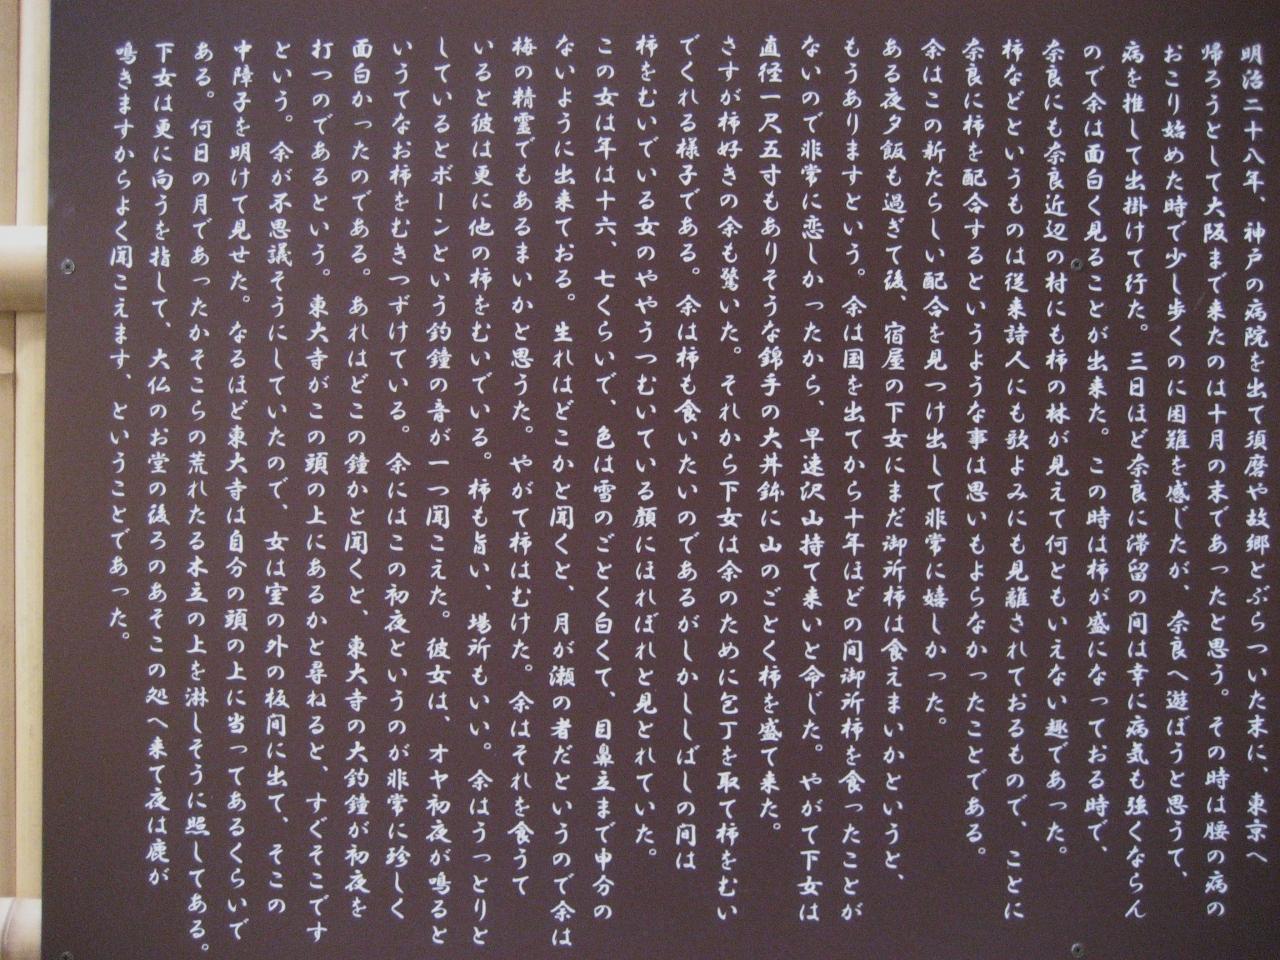 明治二十八年、神戸の病院を出て須磨や故郷とぶらついた末に、東京へ
帰ろうとして大阪まで来たのは十月の末であったと思う。その時は腰の病の
おこり始めた時で少し歩くのに困難を感じたが、奈良へ遊ぼうと思うて、
病を推して出掛けて行た。三日ほど奈良に滞留の間は幸に病気も強くならん
ので余は面白く見ることが出来た。この時は柿が盛になっておる時で、
奈良にも奈良近辺の村にも柿の林が見えて何ともいえない趣であった。
柿などというものは従来詩人にも歌よみにも見離されておるもので、ことに
奈良に柿を配合するというような事は思いもよらなかったことである。
余はこの新たらしい配合を見つけ出して非常に嬉しかった。
ある夜夕飯も過ぎて後、宿屋の下女にまだ御所柿は食えまいかというと、
もうありますという。余は国を出てから十年ほどの間御所柿を食ったことが
ないので非常に恋しかったから、早速沢山持て来いと命じた。やがて下女は
直径一尺五寸もありそうな錦手の大丼鉢に山のごとく柿を盛て来た。
さすが柿好きの余も驚いた。それから下女は余のために包丁を取て柿をむい
でくれる様子である。余は柿も食いたいのであるがしかししばしの間は
柿をむいでいる女のややうつむいている顔にほれぼれと見とれていた。
この女は年は十六、七くらいで、色は雪のごとく白くて、目鼻立まで申分の
ないように出来ておる。生れはどこかと聞くと、月が瀬の者だというので余は
梅の精霊でもあるまいかと思うた。やがて柿はむけた。余はそれを食うて
いると彼は更に他の柿をむいでいる。柿も旨い、場所もいい。余はうっとりと
しているとボーンという釣鐘の音が一つ聞こえた。彼女は、オヤ初夜が鳴ると
いうてなお柿をむきつずけている。余にはこの初夜というのが非常に珍しく
面白かったのである。あれはどこの鐘かと聞くと、東大寺の大釣鐘が初夜を
打つのであるという。東大寺がこの頭の上にあるかと尋ねると、すぐそこです
という。余が不思議そうにしていたので、女は室の外の板間に出て、そこの
中障子を明けて見せた。なるほど東大寺は自分の頭の上に当ってあるくらいで
ある。何日の月であったかそこらの荒れたる木立の上を淋しそうに照してある。
下女は更に向うを指して、大仏のお堂の後ろのあそこの処へ来て夜は鹿が
鳴きますからよく聞こえます、ということであった。